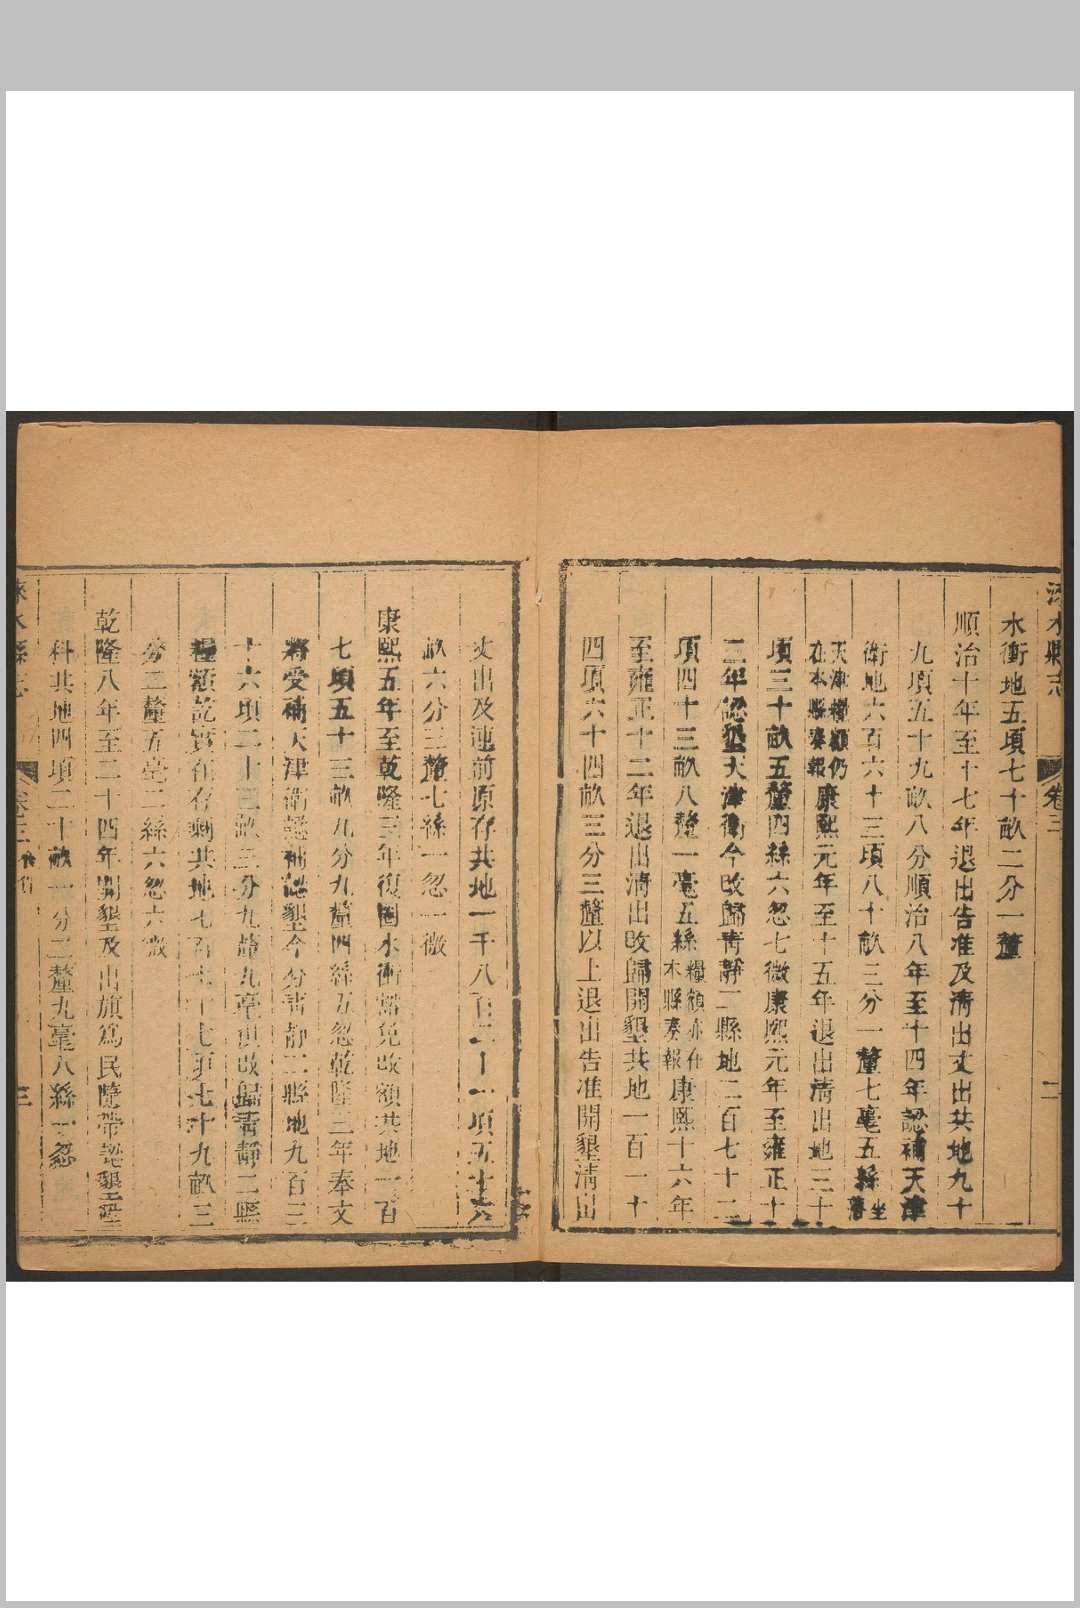 淶水縣志
卷三
二
水衝地五頃七十畝二分一釐
順治十年至十七年退出告准及清出丈出共地九十
九頃五十九畝八分順治八年至十四年認補天津
衛地六百六十三頃八十畝三分一釐七毫五絲坐
天津糧額仍
在本縣奏報康熙元年至十五年退出清出地三十
頃三十畝五釐四絲六忽七微康熙元年至雍正十
三年認墾天津衛今改歸青靜二縣地二百七十二
頃四十三畝八釐一毫五絲糧額亦在
本縣奏報康熙十六年
至雍正十二年退出清出改歸開墾共地一百一十
四頃六十四畝三分三釐以上退出告准開墾清出
丈出及連前原存共地一千八百二十一頃五十六
畝六分三釐七絲一忽一微
康熙五年至乾隆三年復圈水衝豁免改額共地一百
七頃五十三畝九分九釐四絲五忽乾隆三年奉文
將受補天津衛認補認墾今分青靜二縣地九百三
十六頃二十三畝三分九釐九毫更改歸青靜二縣
糧額訖實在存剩共地七百七十七頃七十九畝三
分二釐五毫二絲六忽六微
乾隆八年至二十四年開墾及出旗為民隨帶認墾
科共地四頃二十畝一分二釐九毫八絲一忽
淶水縣志
卷三 食貨
三